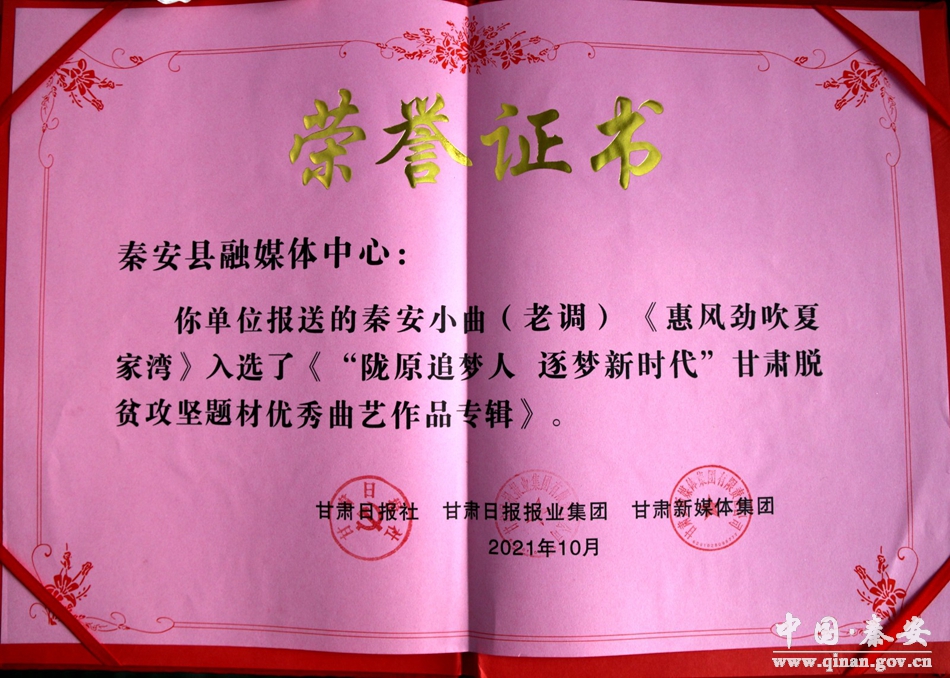 荣誉证书
秦安县融媒体中心：
你单位报送的秦安小曲（老调）《惠风劲吹夏
家湾》入选了《“陇原追梦人 逐梦新时代”甘肃脱
贫攻坚题材优秀曲艺作品专辑》。
甘肃日报社 甘肃日报报业集团 甘肃新媒体集团
2021年10月
中国·秦安
www.qinan.gov.cn